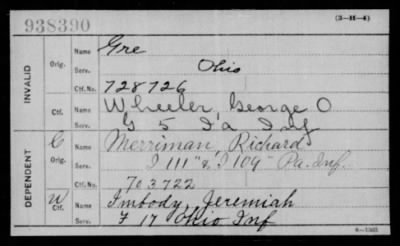 938390
(3—H—4)
INVALID
Orig.
Name Gre
Serv. Ohio
Ctf. No. 728726
Ctf.
Name Wheeler, George O
Serv. G 5 I'a Inf
DEPENDENT
C
Orig.
Name Merriman, Richard
Serv. I 111" & I 109" Pa. Inf.
Ctf. No. 703722
W
Ctf.
Name Imbody, Jeremiah
Serv. F 17 Ohio Inf